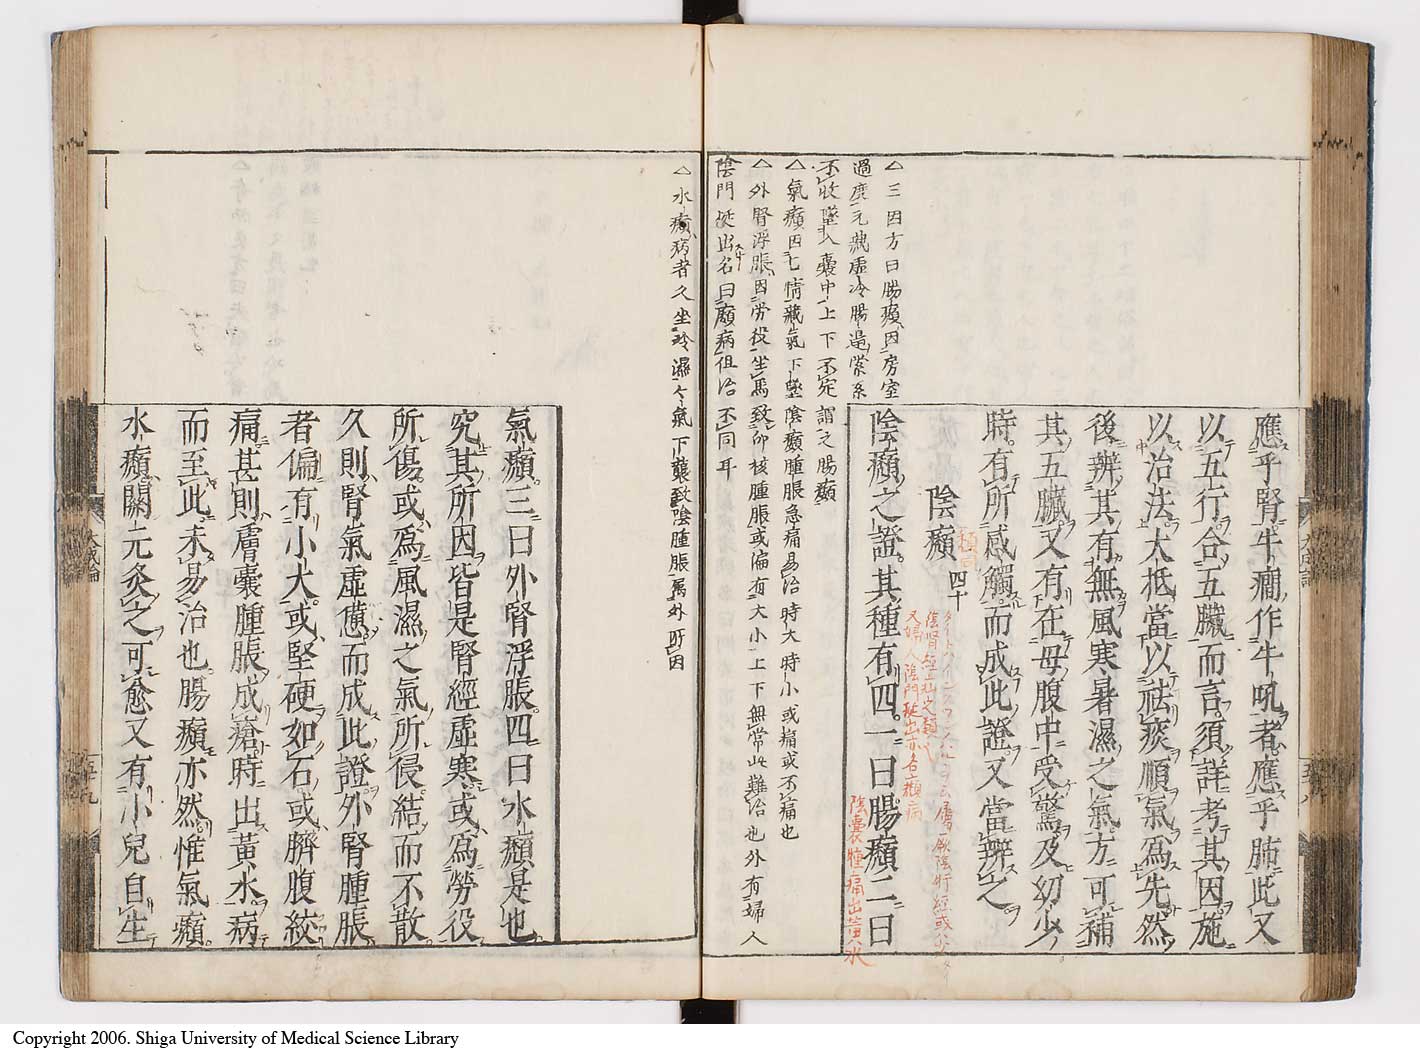 應乎腎牛癎作牛吼者應乎肺此又
以五行合五臟而言須詳考其因施
以治法大抵當以祛痰順氣爲先然
後辨其有無風寒暑濕之氣方可補
其五臟又有在母腹中受驚及幼少
時有所感觸而成此證又當辨之
陰㿗 四十
陰㿗之證其種有四一曰腸㿗二曰
△三因方曰腸㿗因房室
過度元藏虛冷腸邊
不收墜入囊中上下不定謂之腸㿗
△氣㿗因七情藏氣下墜陰㿗腫脹急痛易治時大時小或痛或不痛也
△外腎浮脹因勞役坐馬致卵核腫脹或偏有大小上下無常此難治也外有婦人
陰門挺出名曰㿗病但治不同耳
又婦人陰門挺出亦名㿗病
陰囊腫痛出黃水
氣㿗三曰外腎浮脹四曰水㿗是也
究其所因皆是腎經虛寒或爲勞役
所傷或爲風濕之氣所侵結而不散
久則腎氣虛憊而成此證外腎腫脹
者偏有小大或堅硬如石或臍腹絞
痛甚則膚囊腫脹成瘡時出黃水病
而至此未易治也腸㿗亦然惟氣㿗
水㿗關元灸之可愈又有小兒自生
△水㿗病者久坐冷濕々氣下襲致陰腫脹屬外所因
大成論
五十九
Copyright 2006. Shiga University of Medical Science Library